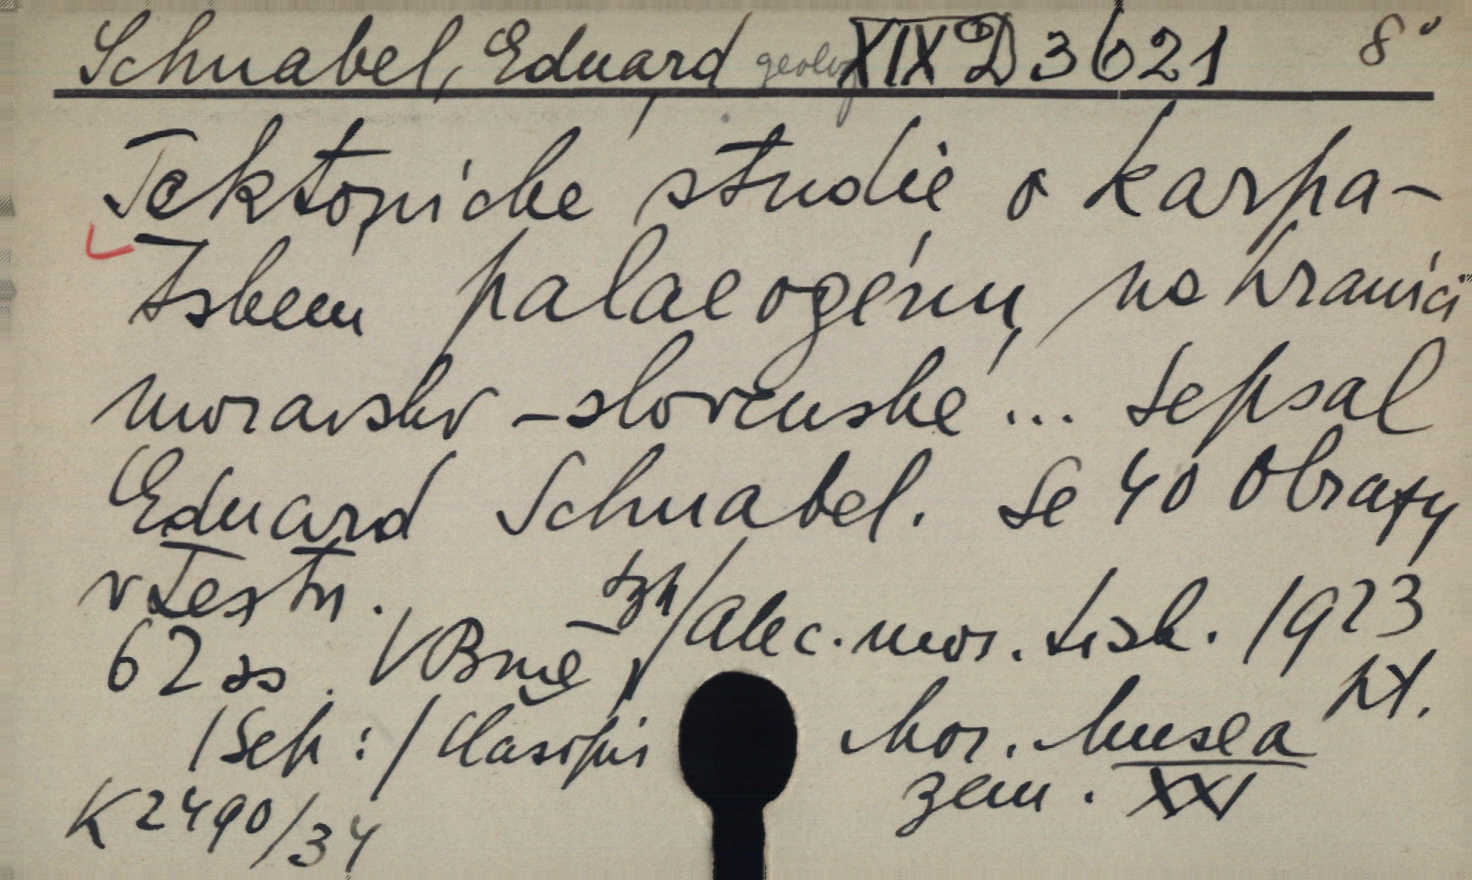 Schnabel, Eduard geolog XIX D 3621 8°
Tektonické studie o karpa-
tském palaeogénu na hranici
moravsko-slovenské ... Sepsal
Eduard Schnabel. Se 40 obrazy
v textu.
62 ss. V Brně, /Akc. mor. tisk. 1923
/Sep: / Časopis Mor. musea
zem. XX/
K 2490/34